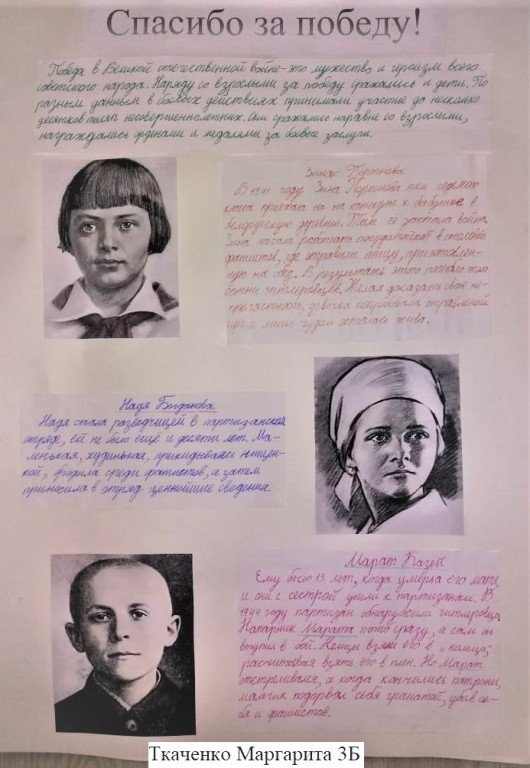 Спасибо за победу!
Победа в Великой отечественной войне-это мужество и героизм всего
советского народа. Наряду со взрослыми за победу сражались и дети. По
разным данным в боевых действиях принимали участие до несколько
десятков тысяч несовершеннолетних. Они сражались наравне со взрослыми,
награждались орденами и медалями за боевые заслуги.
Зина Портнова
В 1941 году Зина Портнова после седьмого
класса приехала на каникулы к бабушке в
белорусскую деревню. Там её застала война.
Зина начала работать посудомойкой в столовой
фашистов, где отравила пищу, приготовлен-
ную на обед. В результате этого погибло около
сотни гитлеровцев. Желая доказать свою не-
причастность, девочка попробовала отравленный
суп и лишь чудом осталась жива.
Надя Богданова
Надя стала разведчицей в партизанском
отряде, ей не было ещё и десяти лет. Ма-
ленькая, худенькая, прикидываясь нищен-
кой, бродила среди фашистов, а затем
приносила в отряд ценнейшие сведения.
Марат Казей
Ему было 13 лет, когда умерла его мать
и они с сестрой ушли к партизанам. В
1944 году партизан обнаружили гитлеровцы.
Напарник Марата погиб сразу, а сам он
вступил в бой. Немцы взяли его в „кольцо",
рассчитывая взять его в плен. Но Марат
отстреливался, а когда кончились патроны,
мальчик подорвал себя гранатой, убив се-
бя и фашистов.
Ткаченко Маргарита 3Б